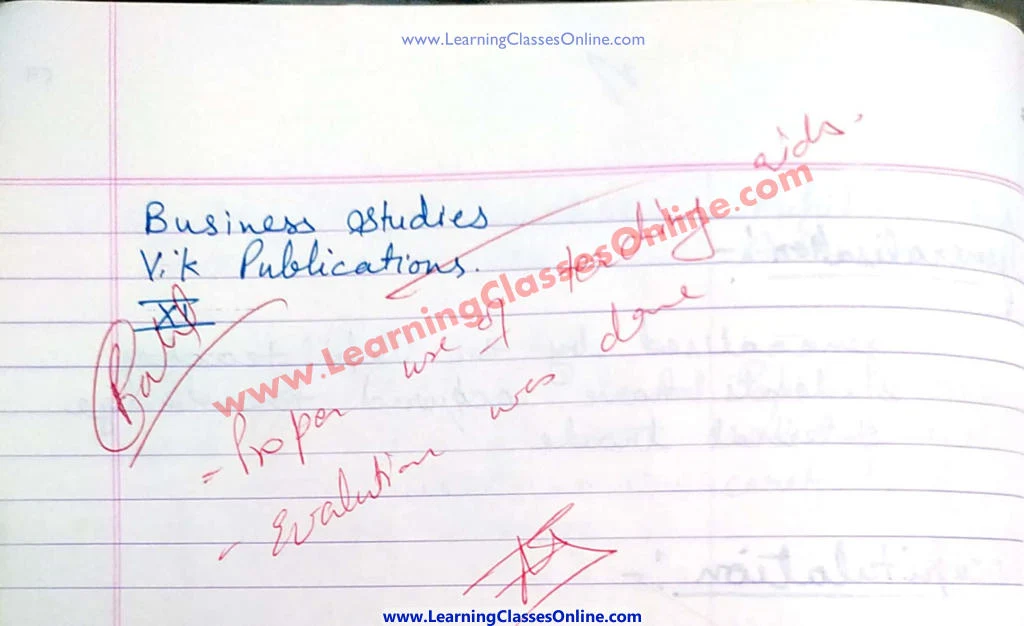 www.LearningClassesOnline.com
Business studies
V.K Publications.
XI
www.LearningClassesOnline.com
- Proper use of teaching aids.
- Evalution was done.
www.LearningClassesOnline.com